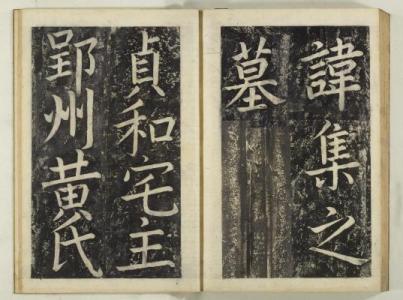 諱集之
墓
貞和宅主
郢州黄氏